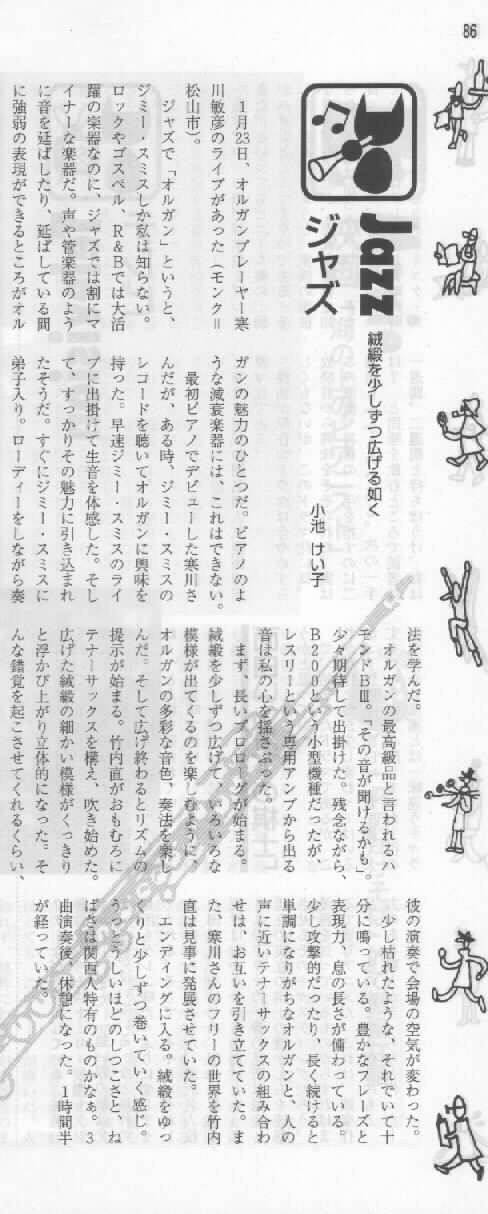 86
Jazz
ジャズ
絨緞を少しずつ広げる如く
小池 けい子
１月23日、オルガンプレーヤー寒
川敏彦のライブがあった（モンク＝
松山市）。
ジャズで「オルガン」というと、
ジミー・スミスしか私は知らない。
ロックやゴスペル、Ｒ＆Ｂでは大活
躍の楽器なのに、ジャズでは割にマ
イナーな楽器だ。声や管楽器のよう
に音を延ばしたり、延ばしている間
に強弱の表現ができるところがオル
ガンの魅力のひとつだ。ピアノのよ
うな減衰楽器には、これはできない。
最初ピアノでデビューした寒川さ
んだが、ある時、ジミー・スミスの
レコードを聴いてオルガンに興味を
持った。早速ジミー・スミスのライ
ブに出掛けて生音を体感した。そし
て、すっかりその魅力に引き込まれ
たそうだ。すぐにジミー・スミスに
弟子入り。ローディーをしながら奏
法を学んだ。
オルガンの最高級品と言われるハ
モンドＢⅢ。「その音が聞けるかも」。
少々期待して出掛けた。残念ながら、
Ｂ２００という小型機種だったが、
レスリーという専用アンプから出る
音は私の心を揺さぶった。
まず、長いプロローグが始まる。
絨緞を少しずつ広げて、いろいろな
模様が出てくるのを楽しむように
オルガンの多彩な音色、奏法を楽し
んだ。そして広げ終わるとリズムの
提示が始まる。竹内直がおもむろに
テナーサックスを構え、吹き始めた。
広げた絨緞の細かい模様がくっきり
と浮かび上がり立体的になった。そ
んな錯覚を起こさせてくれるくらい、
彼の演奏で会場の空気が変わった。
少し枯れたような、それでいて十
分に鳴っている。豊かなフレーズと
表現力、息の長さが備わっている。
少し攻撃的だったり、長く続けると
単調になりがちなオルガンと、人の
声に近いテナーサックスの組み合わ
せは、お互いを引き立てていた。ま
た、寒川さんのフリーの世界を竹内
直は見事に発展させていた。
エンディングに入る。絨緞をゆっ
くりと少しずつ巻いていく感じ。
うっとうしいほどのしつこさと、ね
ばさは関西人特有のものかなぁ。３
曲演奏後、休憩になった。１時間半
が経っていた。